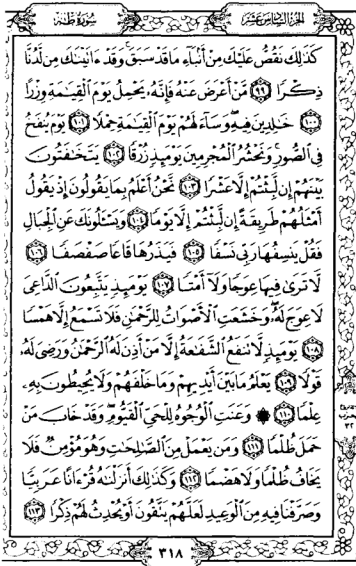 الجزء السادس عشر
سورة طه
كَذَٰلِكَ نَقُصُّ عَلَيْكَ مِنْ أَنۢبَآءِ مَا قَدْ سَبَقَ ۚ وَقَدْ ءَاتَيْنَٰكَ مِن لَّدُنَّا
ذِكْرًا ٩٩ مَّنْ أَعْرَضَ عَنْهُ فَإِنَّهُۥ يَحْمِلُ يَوْمَ ٱلْقِيَٰمَةِ وِزْرًا
١٠٠ خَٰلِدِينَ فِيهِ ۖ وَسَآءَ لَهُمْ يَوْمَ ٱلْقِيَٰمَةِ حِمْلًا ١٠١ يَوْمَ يُنفَخُ
فِى ٱلصُّورِ ۚ وَنَحْشُرُ ٱلْمُجْرِمِينَ يَوْمَئِذٍ زُرْقًا ١٠٢ يَتَخَٰفَتُونَ
بَيْنَهُمْ إِن لَّبِثْتُمْ إِلَّا عَشْرًا ١٠٣ نَّحْنُ أَعْلَمُ بِمَا يَقُولُونَ إِذْ يَقُولُ
أَمْثَلُهُمْ طَرِيقَةً إِن لَّبِثْتُمْ إِلَّا يَوْمًا ١٠٤ وَيَسْـَٔلُونَكَ عَنِ ٱلْجِبَالِ
فَقُلْ يَنسِفُهَا رَبِّى نَسْفًا ١٠٥ فَيَذَرُهَا قَاعًا صَفْصَفًا ١٠٦
لَّا تَرَىٰ فِيهَا عِوَجًا وَلَآ أَمْتًا ١٠٧ يَوْمَئِذٍ يَتَّبِعُونَ ٱلدَّاعِىَ
لَا عِوَجَ لَهُۥ ۖ وَخَشَعَتِ ٱلْأَصْوَاتُ لِلرَّحْمَٰنِ فَلَا تَسْمَعُ إِلَّا هَمْسًا
١٠٨ يَوْمَئِذٍ لَّا تَنفَعُ ٱلشَّفَٰعَةُ إِلَّا مَنْ أَذِنَ لَهُ ٱلرَّحْمَٰنُ وَرَضِىَ لَهُۥ
قَوْلًا ١٠٩ يَعْلَمُ مَا بَيْنَ أَيْدِيهِمْ وَمَا خَلْفَهُمْ وَلَا يُحِيطُونَ بِهِۦ
عِلْمًا ١١٠ ۞ وَعَنَتِ ٱلْوُجُوهُ لِلْحَىِّ ٱلْقَيُّومِ ۖ وَقَدْ خَابَ مَنْ
حَمَلَ ظُلْمًا ١١١ وَمَن يَعْمَلْ مِنَ ٱلصَّٰلِحَٰتِ وَهُوَ مُؤْمِنٌ فَلَا
يَخَافُ ظُلْمًا وَلَا هَضْمًا ١١٢ وَكَذَٰلِكَ أَنزَلْنَٰهُ قُرْءَانًا عَرَبِيًّا
وَصَرَّفْنَا فِيهِ مِنَ ٱلْوَعِيدِ لَعَلَّهُمْ يَتَّقُونَ أَوْ يُحْدِثُ لَهُمْ ذِكْرًا ١١٣
٣١٨